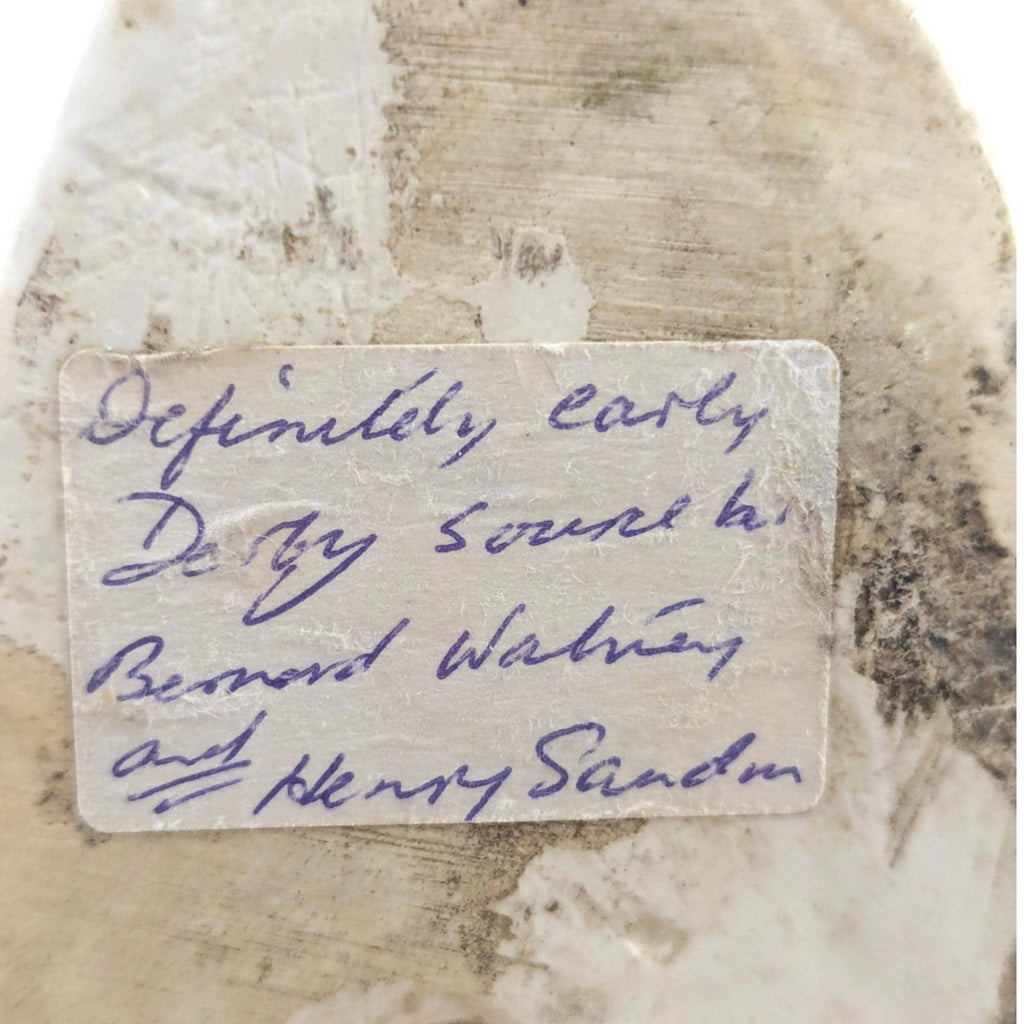 Definitely early
Derby
Bernard Watney
and Henry Sandon